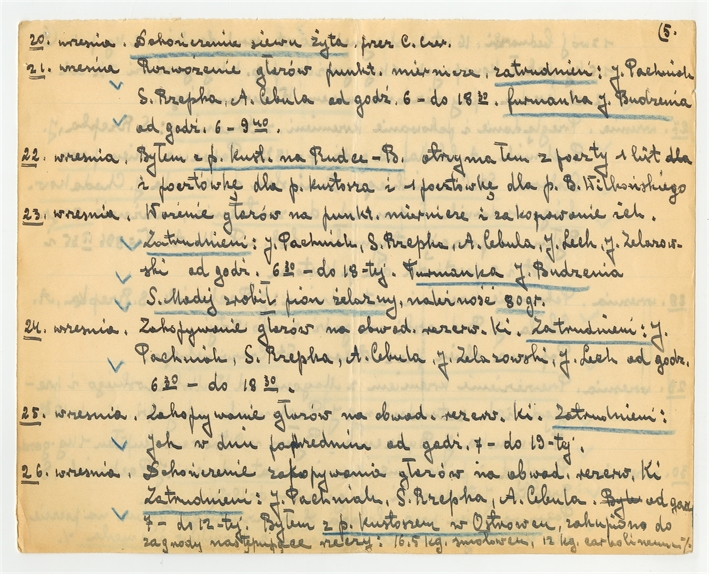 (5.
20. wreśnia. Dokończenie siewu żyta, prez C. Czer.
21. wreśnia Rozwożenie głazów punkt. miernicze, zatrudnieni: J. Pachniak
S. Rzepka, A. Cebula od godź. 6 - do 18 30. furmanka J. Budzenia
od godź. 6 - 9 40.
22. wreśnia Byłem z p. kust. na Rudce - B. otrzymałem z poczty 1 list dla
i pocztówkę dla p. kustosza i 1 pocztówkę dla p. E. Wilkońskiego
23. wreśnia. Wożenie głazów na punkt. miernicze i zakopowanie ich.
Zatrudnieni: J. Pachniak, S. Rzepka, A. Cebula, J. Lech, J. Zelazow-
ski od godz. 6 30 - do 18-tej. Furmanka J. Budzenia
S. Madej zrobił pion żelazny, należność 80 gr.
24. wreśnia. Zakopywanie głazów na obwod. rezerw. ki. Zatrudnieni: J.
Pachniak, S. Rzepka, A. Cebula, J. Zelazowski, J. Lech od godz.
6 30 - do 18 30.
25. wresnia. Zakopywanie głazów na obwod. rezerw. ki. Zatrudnieni:
jak w dniu poprednim od godź. 7 - do 19-tej.
26. wreśnia. Dokończenie zakopywania głazów na obwod. rezerw. ki
Zatrudnieni: J. Pachniak, S. Rzepka, A. Cebula. od godz
7 - do 12-tej. Byłem z p. kustoszem w Ostrowcu, zakupiono do
zagrody następujące rzeczy: 16,5 kg. smołowcu, 12 kg. carbolineum